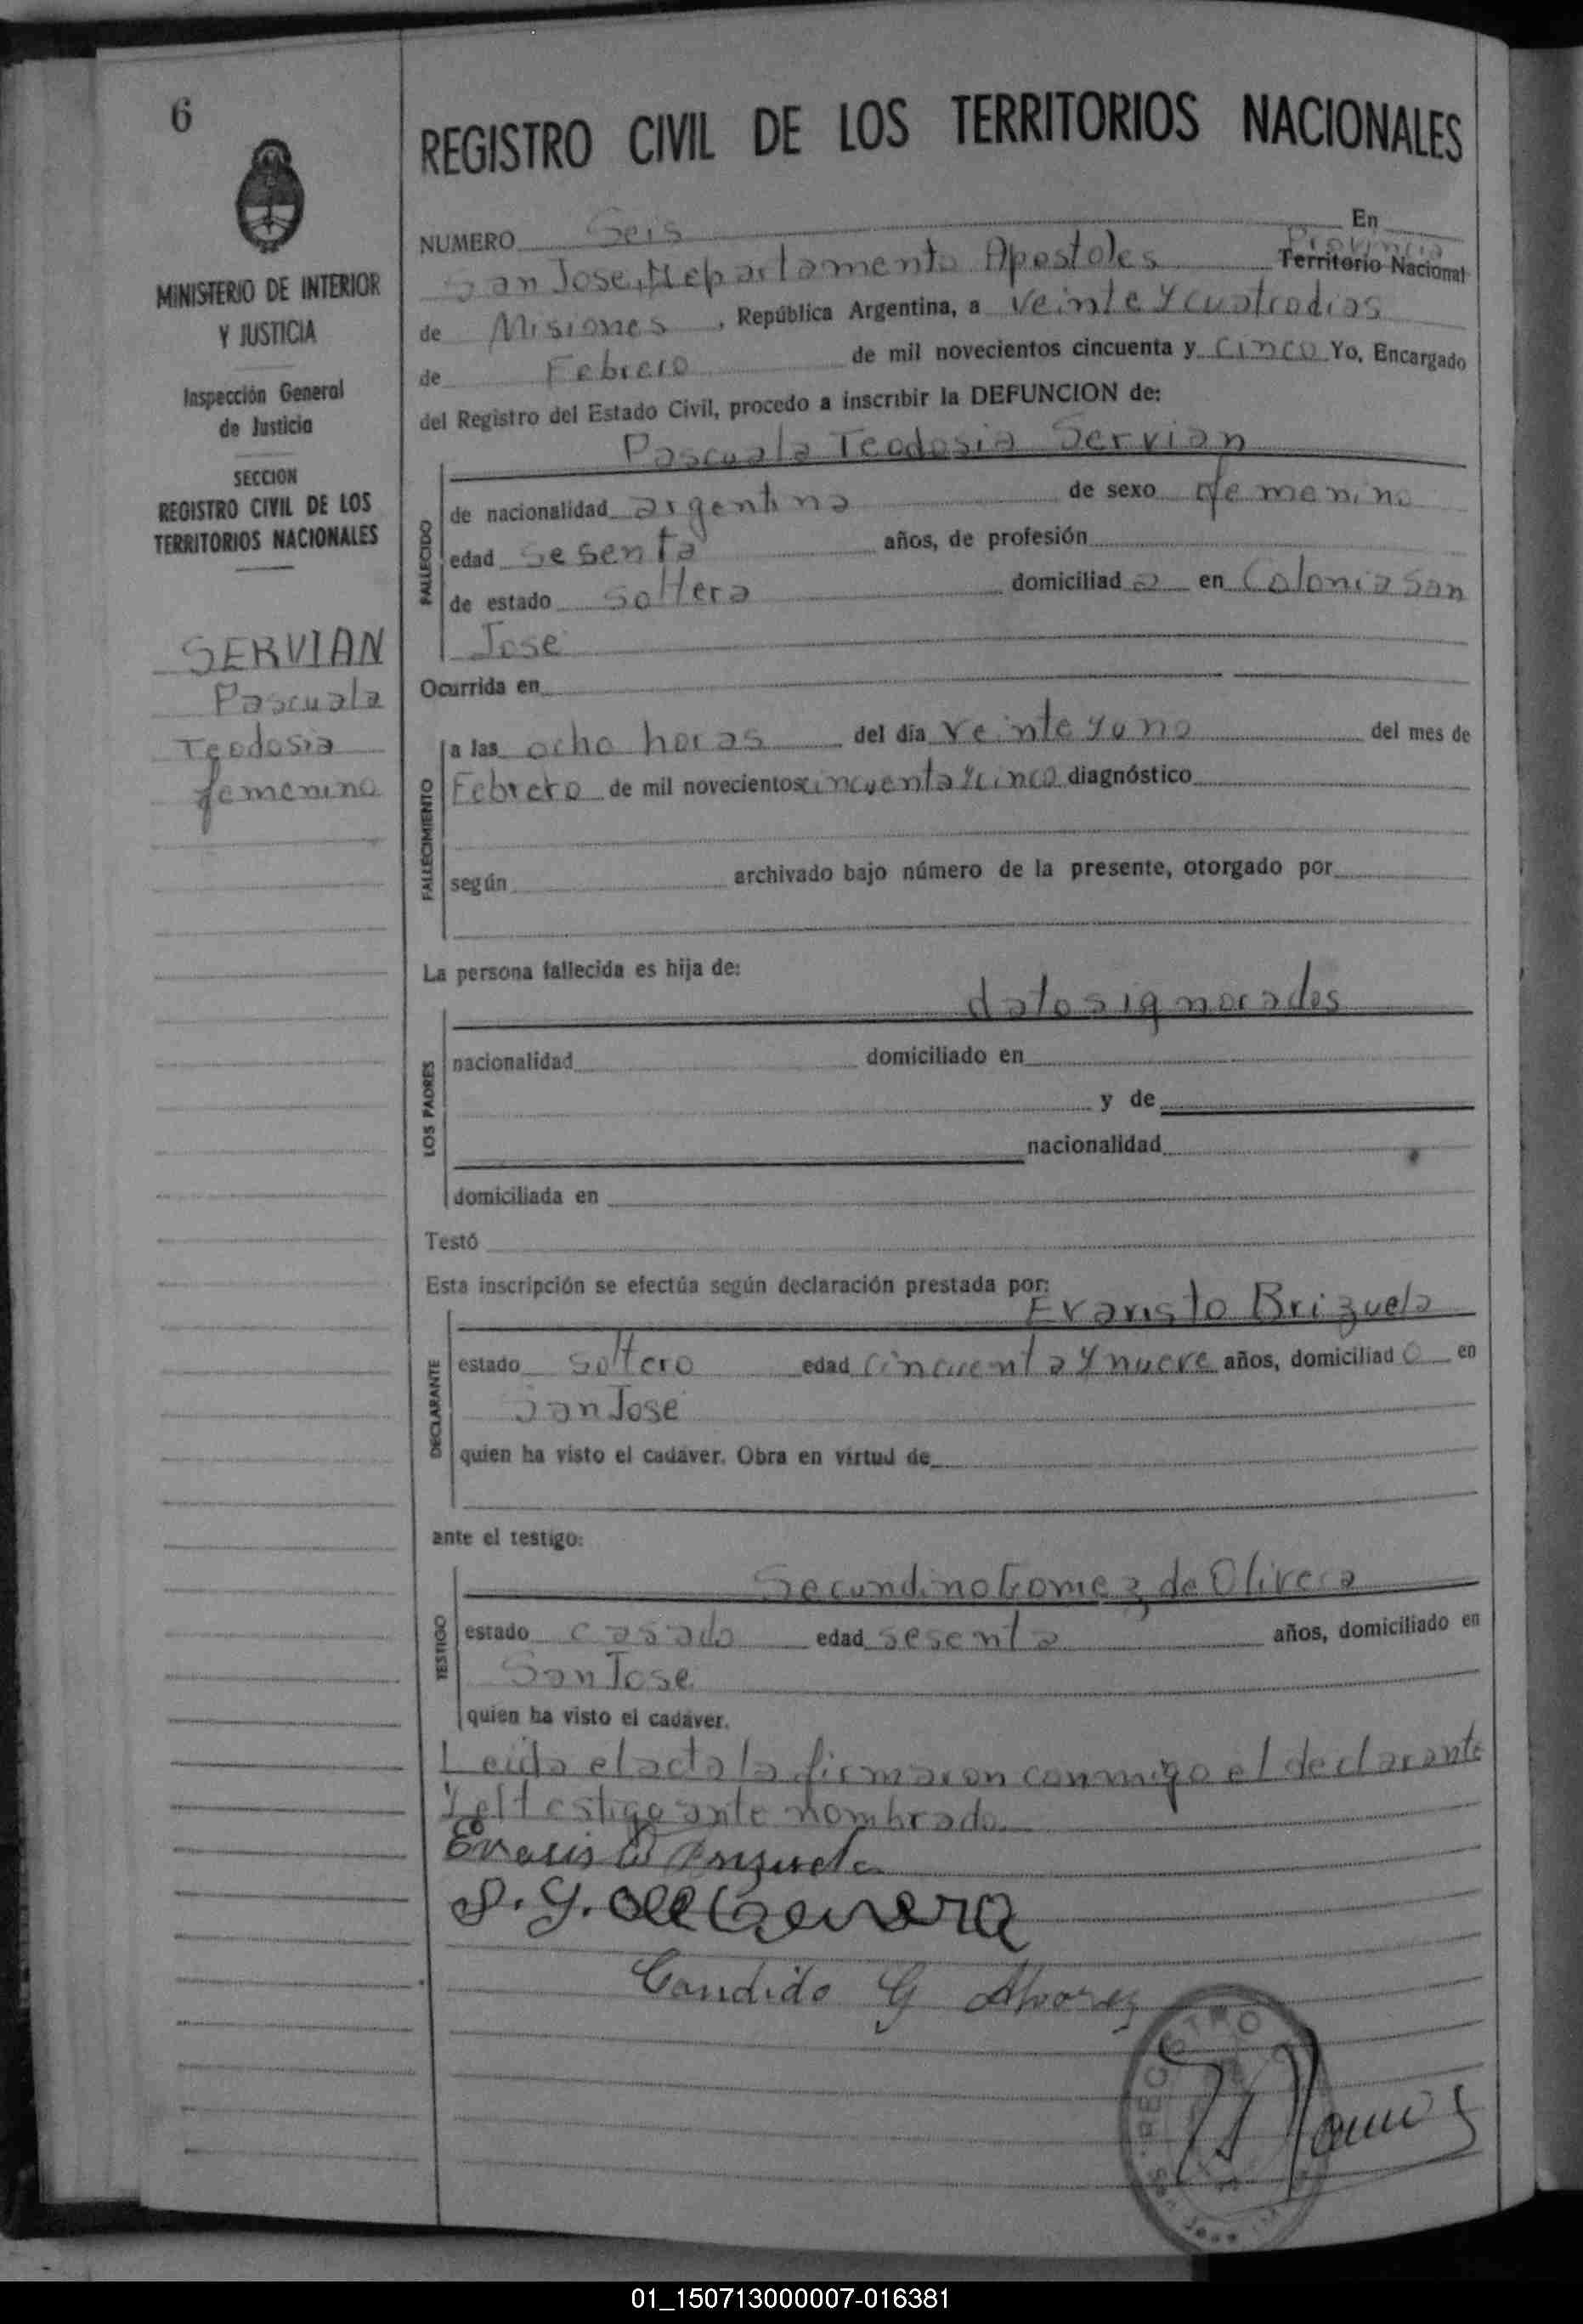 6
MINISTERIO DE INTERIOR
Y JUSTICIA
Inspección General
de Justicia
SECCION
REGISTRO CIVIL DE LOS
TERRITORIOS NACIONALES
SERVIAN
Pascuala
Teodosia
femenino
REGISTRO CIVIL DE LOS TERRITORIOS NACIONALES
NUMERO Seis En
San Jose, Departamento Apostoles Provincia Territorio Nacional
de Misiones, República Argentina, a veinte y cuatro dias
de Febrero de mil novecientos cincuenta y cinco Yo, Encargado
del Registro del Estado Civil, procedo a inscribir la DEFUNCION de:
Pascuala Teodosia Servian
FALLECIDO
de nacionalidad argentina de sexo femenino
edad sesenta años, de profesión
de estado soltera domiciliad a en Colonia San
Jose
Ocurrida en
FALLECIMIENTO
a las ocho horas del día veinte y uno del mes de
Febrero de mil novecientos cincuenta y cinco diagnóstico
según archivado bajo número de la presente, otorgado por
La persona fallecida es hija de:
datos ignorados
LOS PADRES
nacionalidad domiciliado en
y de
nacionalidad
domiciliada en
Testó
Esta inscripción se efectúa según declaración prestada por:
Evaristo Brizuela
DECLARANTE
estado soltero edad cincuenta y nueve años, domiciliad o en
San Jose
quien ha visto el cadáver. Obra en virtud de
ante el testigo:
Secundino Gomez de Olivera
TESTIGO
estado casado edad sesenta años, domiciliado en
San Jose
quien ha visto el cadáver.
Leida el acta la firmaron conmigo el declarante
y el testigo ante nombrado
Evaristo Brizuela
S. G. de Olivera
Candido G Alvarez
REGISTRO
San Jose
01_150713000007-016381